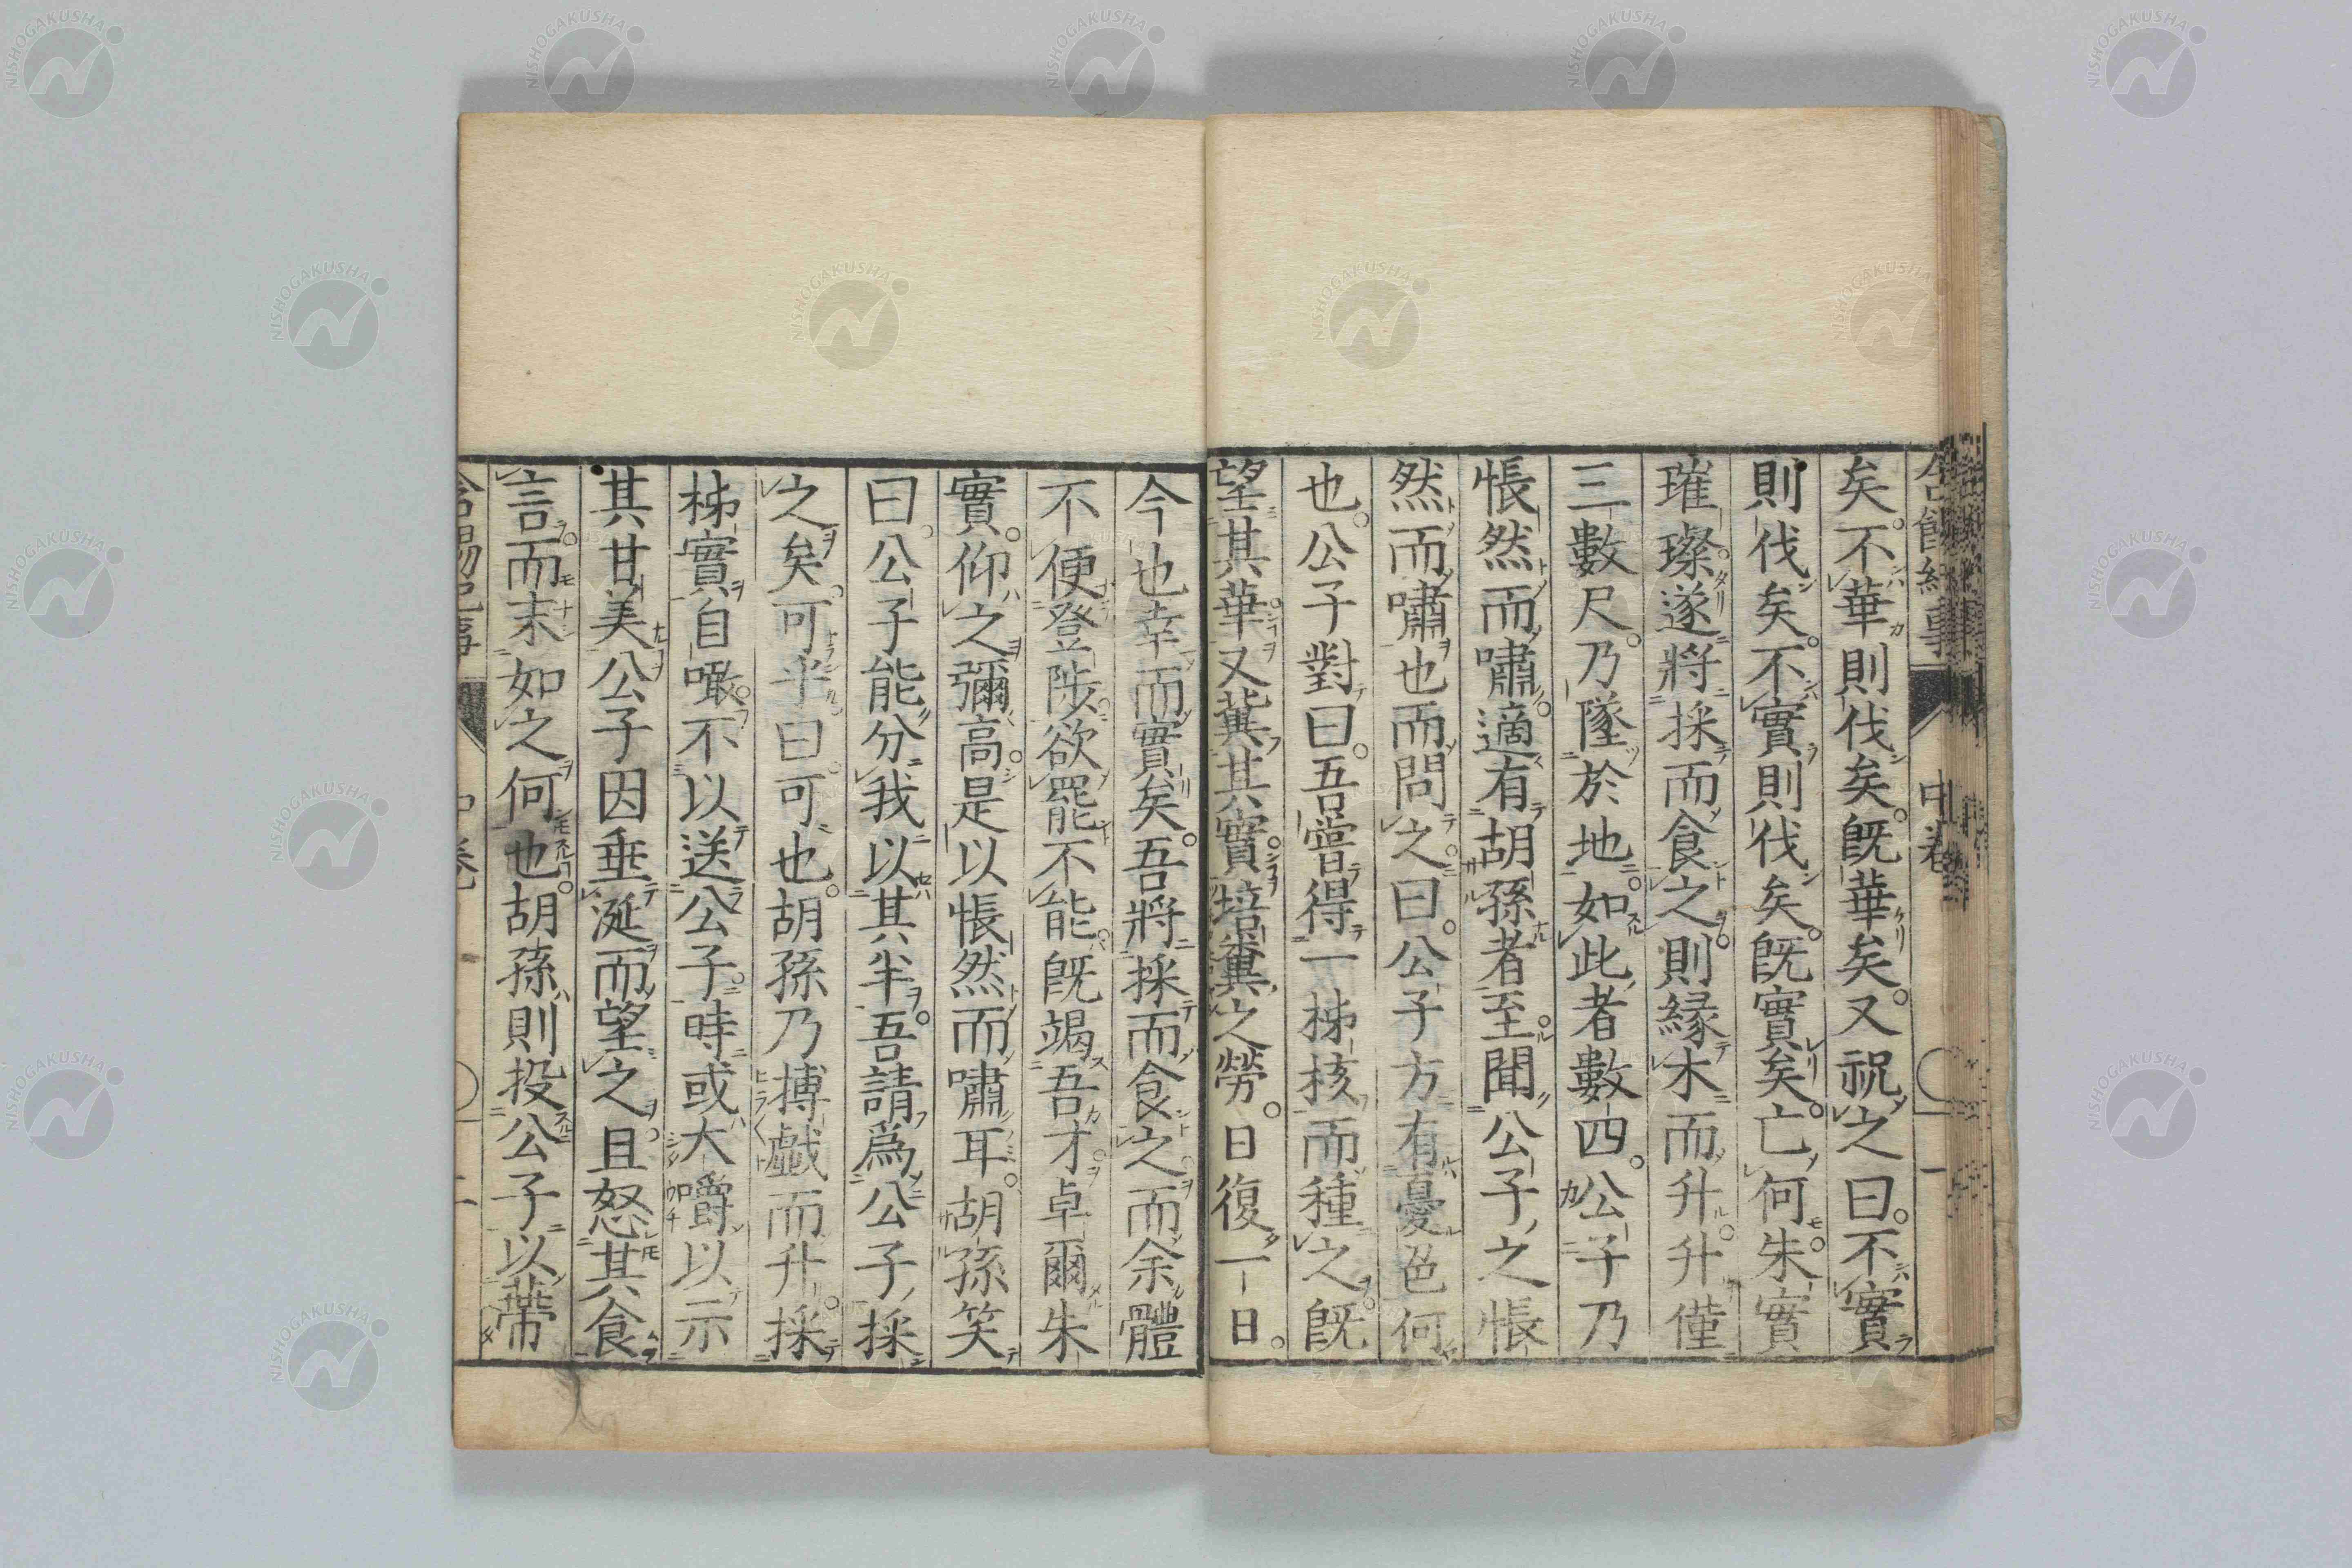 矣。不華則伐矣。既華矣。又祝之曰。不實
則伐矣。不實則伐矣。既實矣。亡何。朱實
璀璨。遂將採而食之。則緣木而升。升僅
三數尺。乃墜於地。如此者數四。公子乃
悵然而嘯。適有胡孫者至。聞公子之悵
然而嘯也。而問之曰。公子方有憂色何
也。公子對曰。吾嘗得一柹核而種之。既
望其華。又冀其實。培糞之勞。日復一日。
今也幸而實矣。吾將採而食之。而余體
不便登陟。欲罷不能。既竭吾才。卓爾朱
實。仰之彌高。是以悵然而嘯耳。胡孫笑
曰。公子能分我以其半。吾請爲公子採
之矣。可乎。曰。可也。胡孫乃搏戲而升。採
柹實自噉。不以送公子。時或大嚼以示
其甘美。公子因垂涎而望之。且怒其食
言。而末如之何也。胡孫則投公子以蔕
中卷
NISHOGAKUSHA